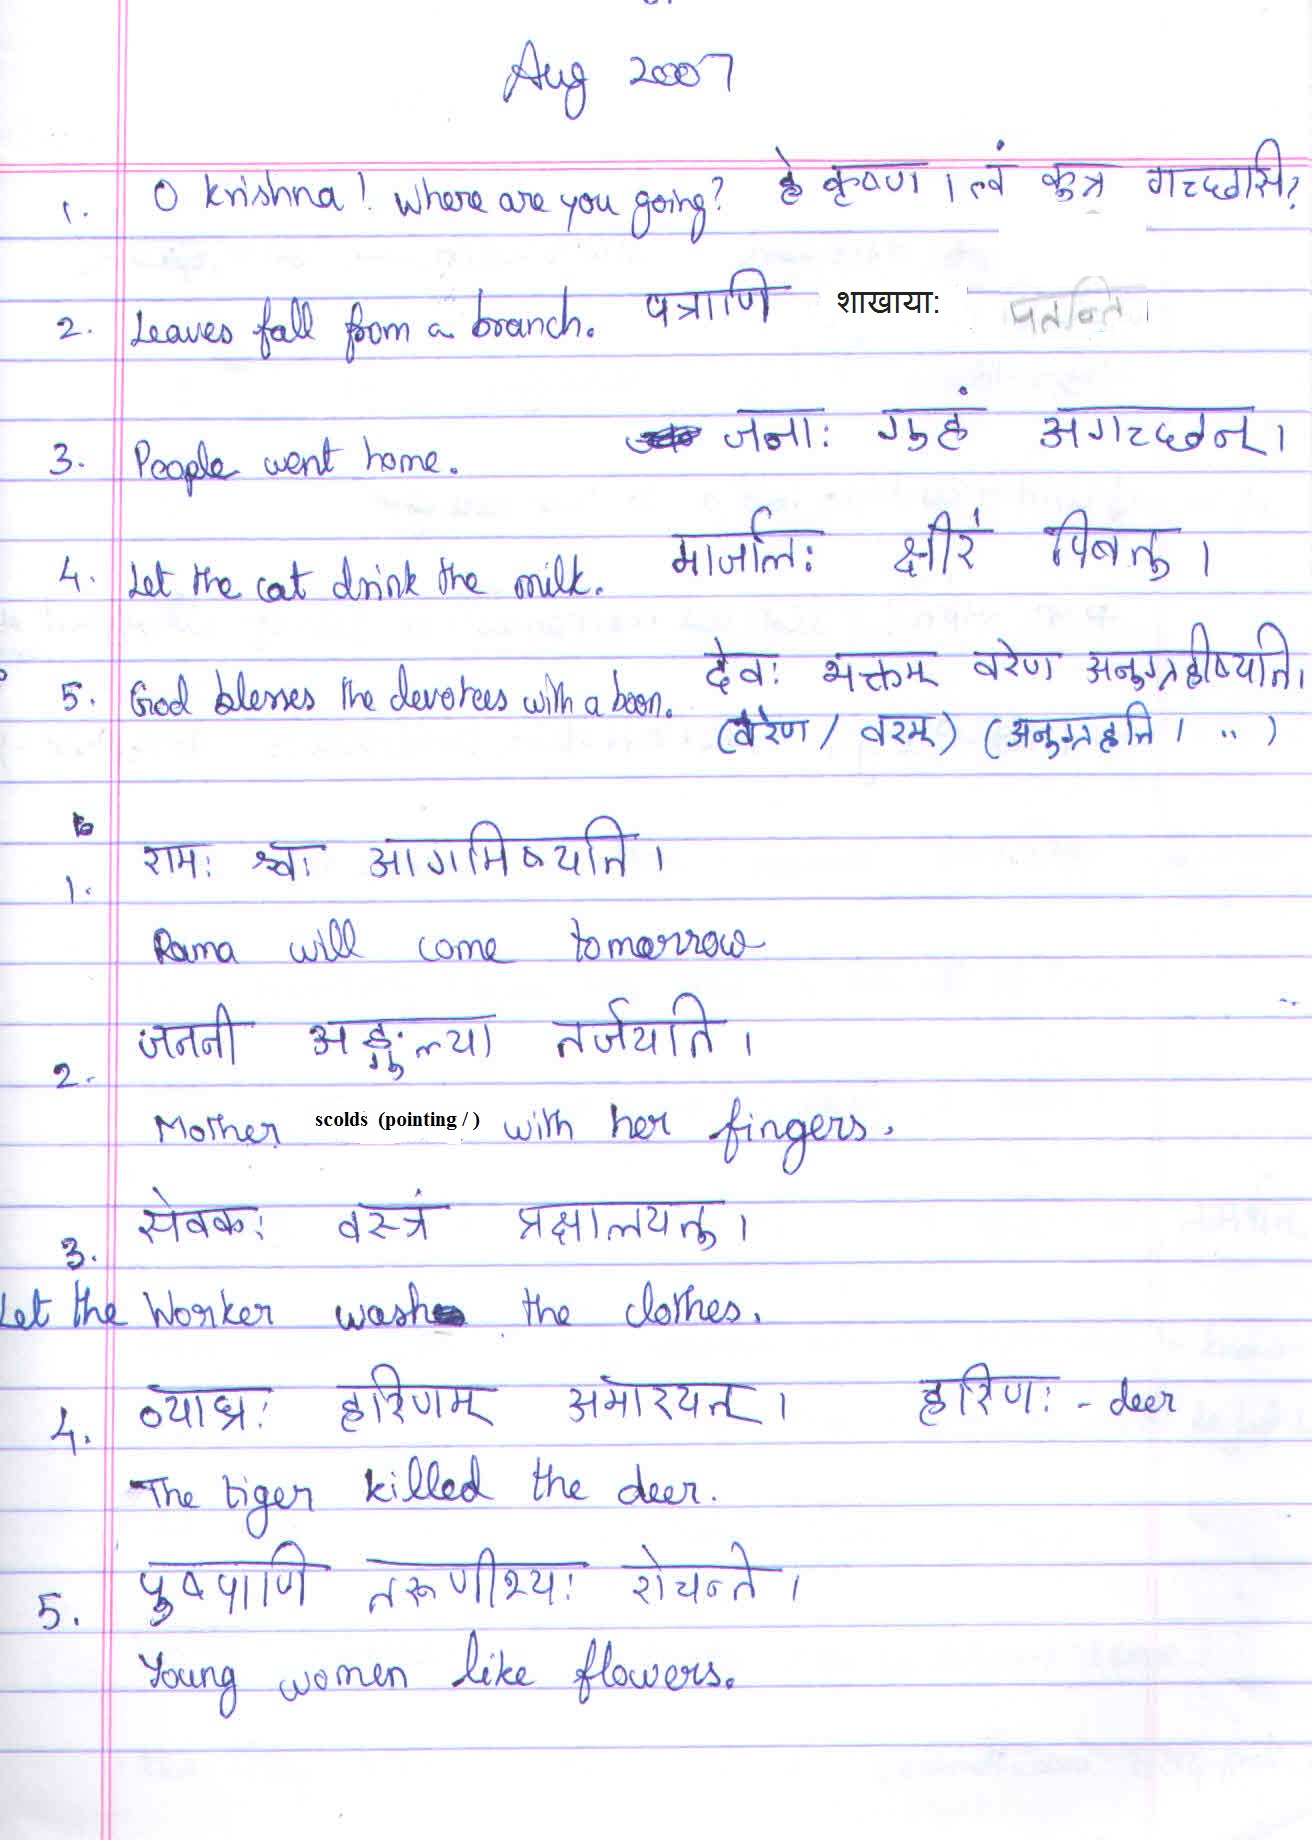 Aug 2007
1. O Krishna! Where are you going? हे कृष्ण । त्वं कुत्र गच्छसि?
2. Leaves fall from a branch. पत्राणि शाखाया: पतन्ति ।
3. People went home. जनाः गृहं अगच्छन् ।
4. Let the cat drink the milk. मार्जालः क्षीरं पिबतु ।
5. God blesses the devotees with a boon. देवः भक्तम् वरेण अनुग्रहीष्यति ।
(वरेण / वरम्) (अनुग्रहति । ..)
6
1. रामः श्वः आगमिष्यति ।
Rama will come tomorrow
2. जननी अङ्गुल्या तर्जयति ।
Mother scolds (pointing / ) with her fingers.
3. सेवकः वस्त्रं प्रक्षालयतु ।
Let the Worker wash the clothes.
4. व्याघ्रः हरिणम् अमारयत् । हरिणः - deer
The tiger killed the deer.
5. पुष्पाणि तरूणीभ्यः रोचन्ते ।
Young women like flowers.